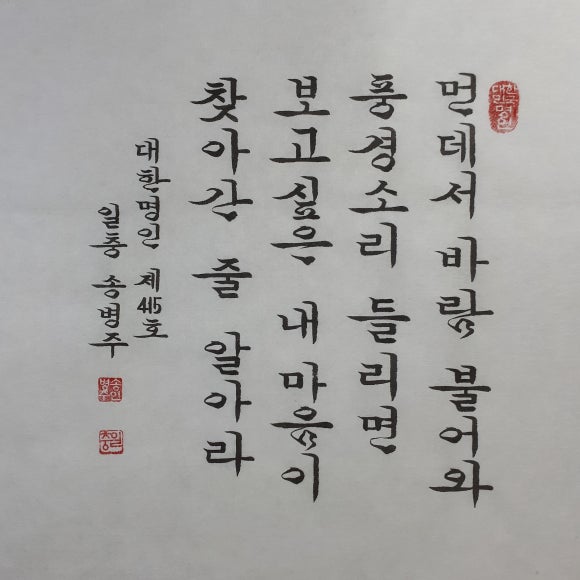 먼데서 바람 불어와
풍경소리 들리면
보고싶은 내 마음이
찾아간 줄 알아라
대한명인 제415호
일중 송병주
대한민국명인
송병주
일중